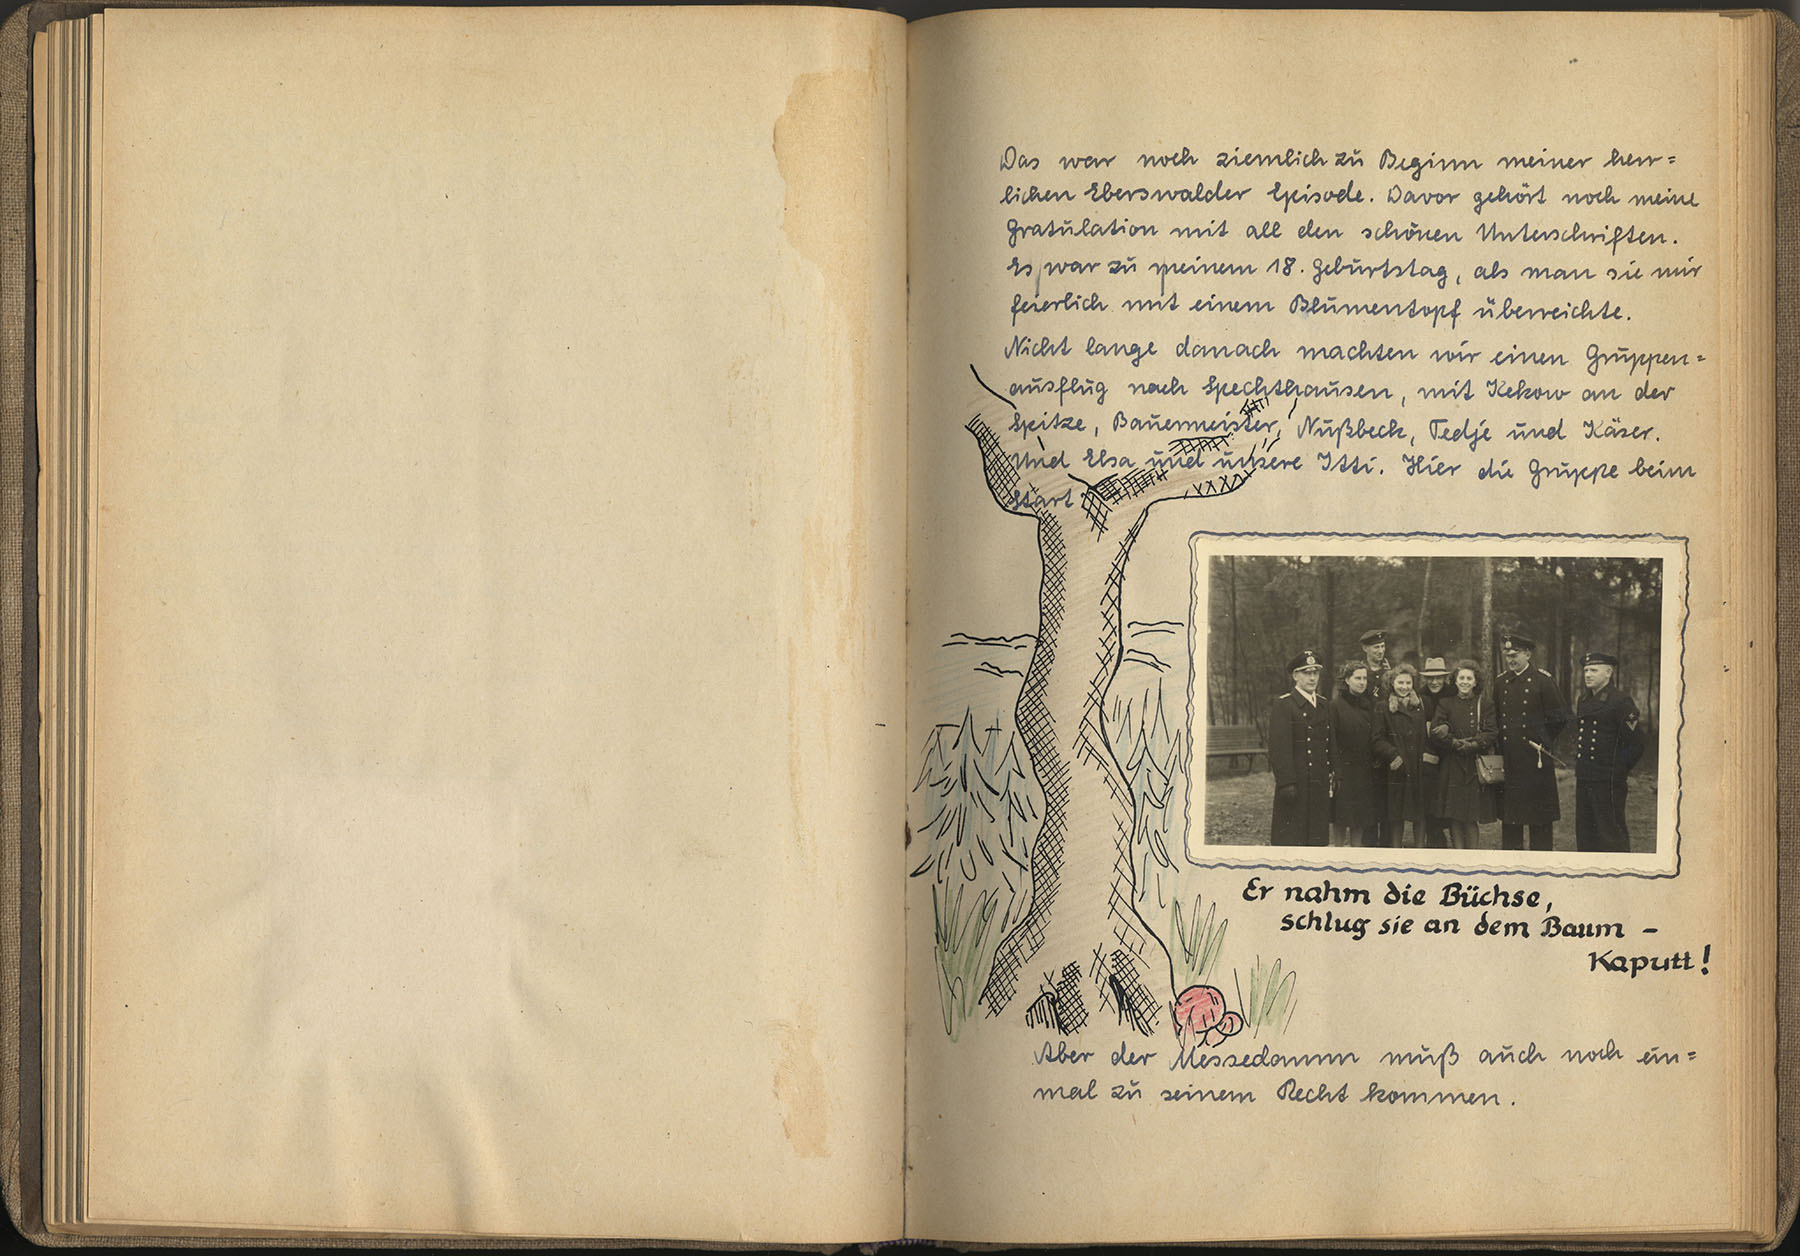 Das war noch ziemlich zu Beginn meiner herr=
lichen Eberswalder Episode. Davor gehört noch meine
Gratulation mit all den schönen Unterschriften.
Es war zu meinem 18. Geburtstag, als man sie mir
feierlich mit einem Blumentopf überreichte.
Nicht lange danach machten wir einen Gruppen=
ausflug nach Spechthausen, mit Kekow an der
Spitze, Bauermeister, Nußbeck, Tedje und Käser.
Und Elsa und unsere Itti. Hier die Gruppe beim
Start
Er nahm die Büchse,
schlug sie an dem Baum –
Kaputt!
Aber der Messedamm muß auch noch ein=
mal zu seinem Recht kommen.